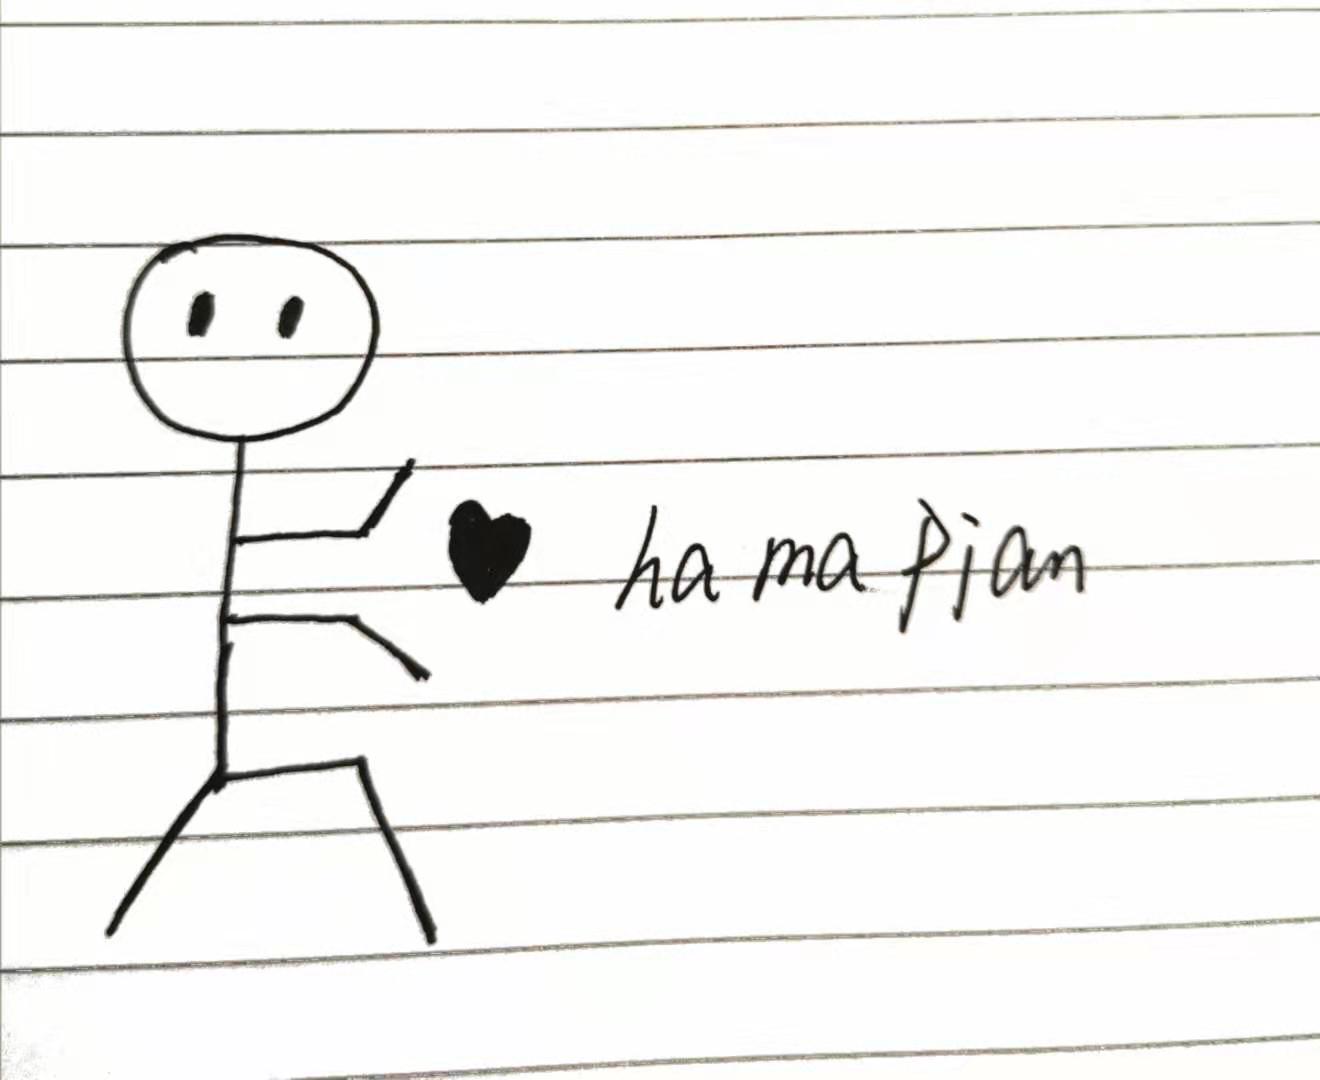 ha ma pian